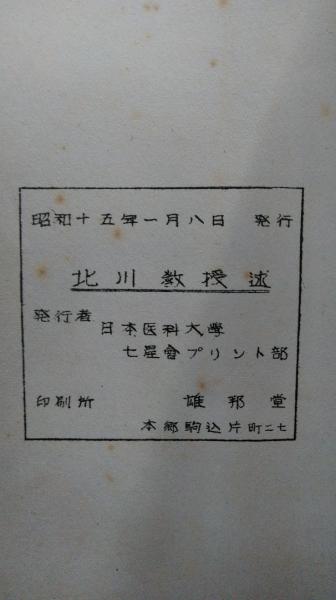 昭和十五年一月八日 発行
北川教授述
発行者
日本医科大學
七星會プリント部
印刷所 雄邦堂
本郷駒込片町二七